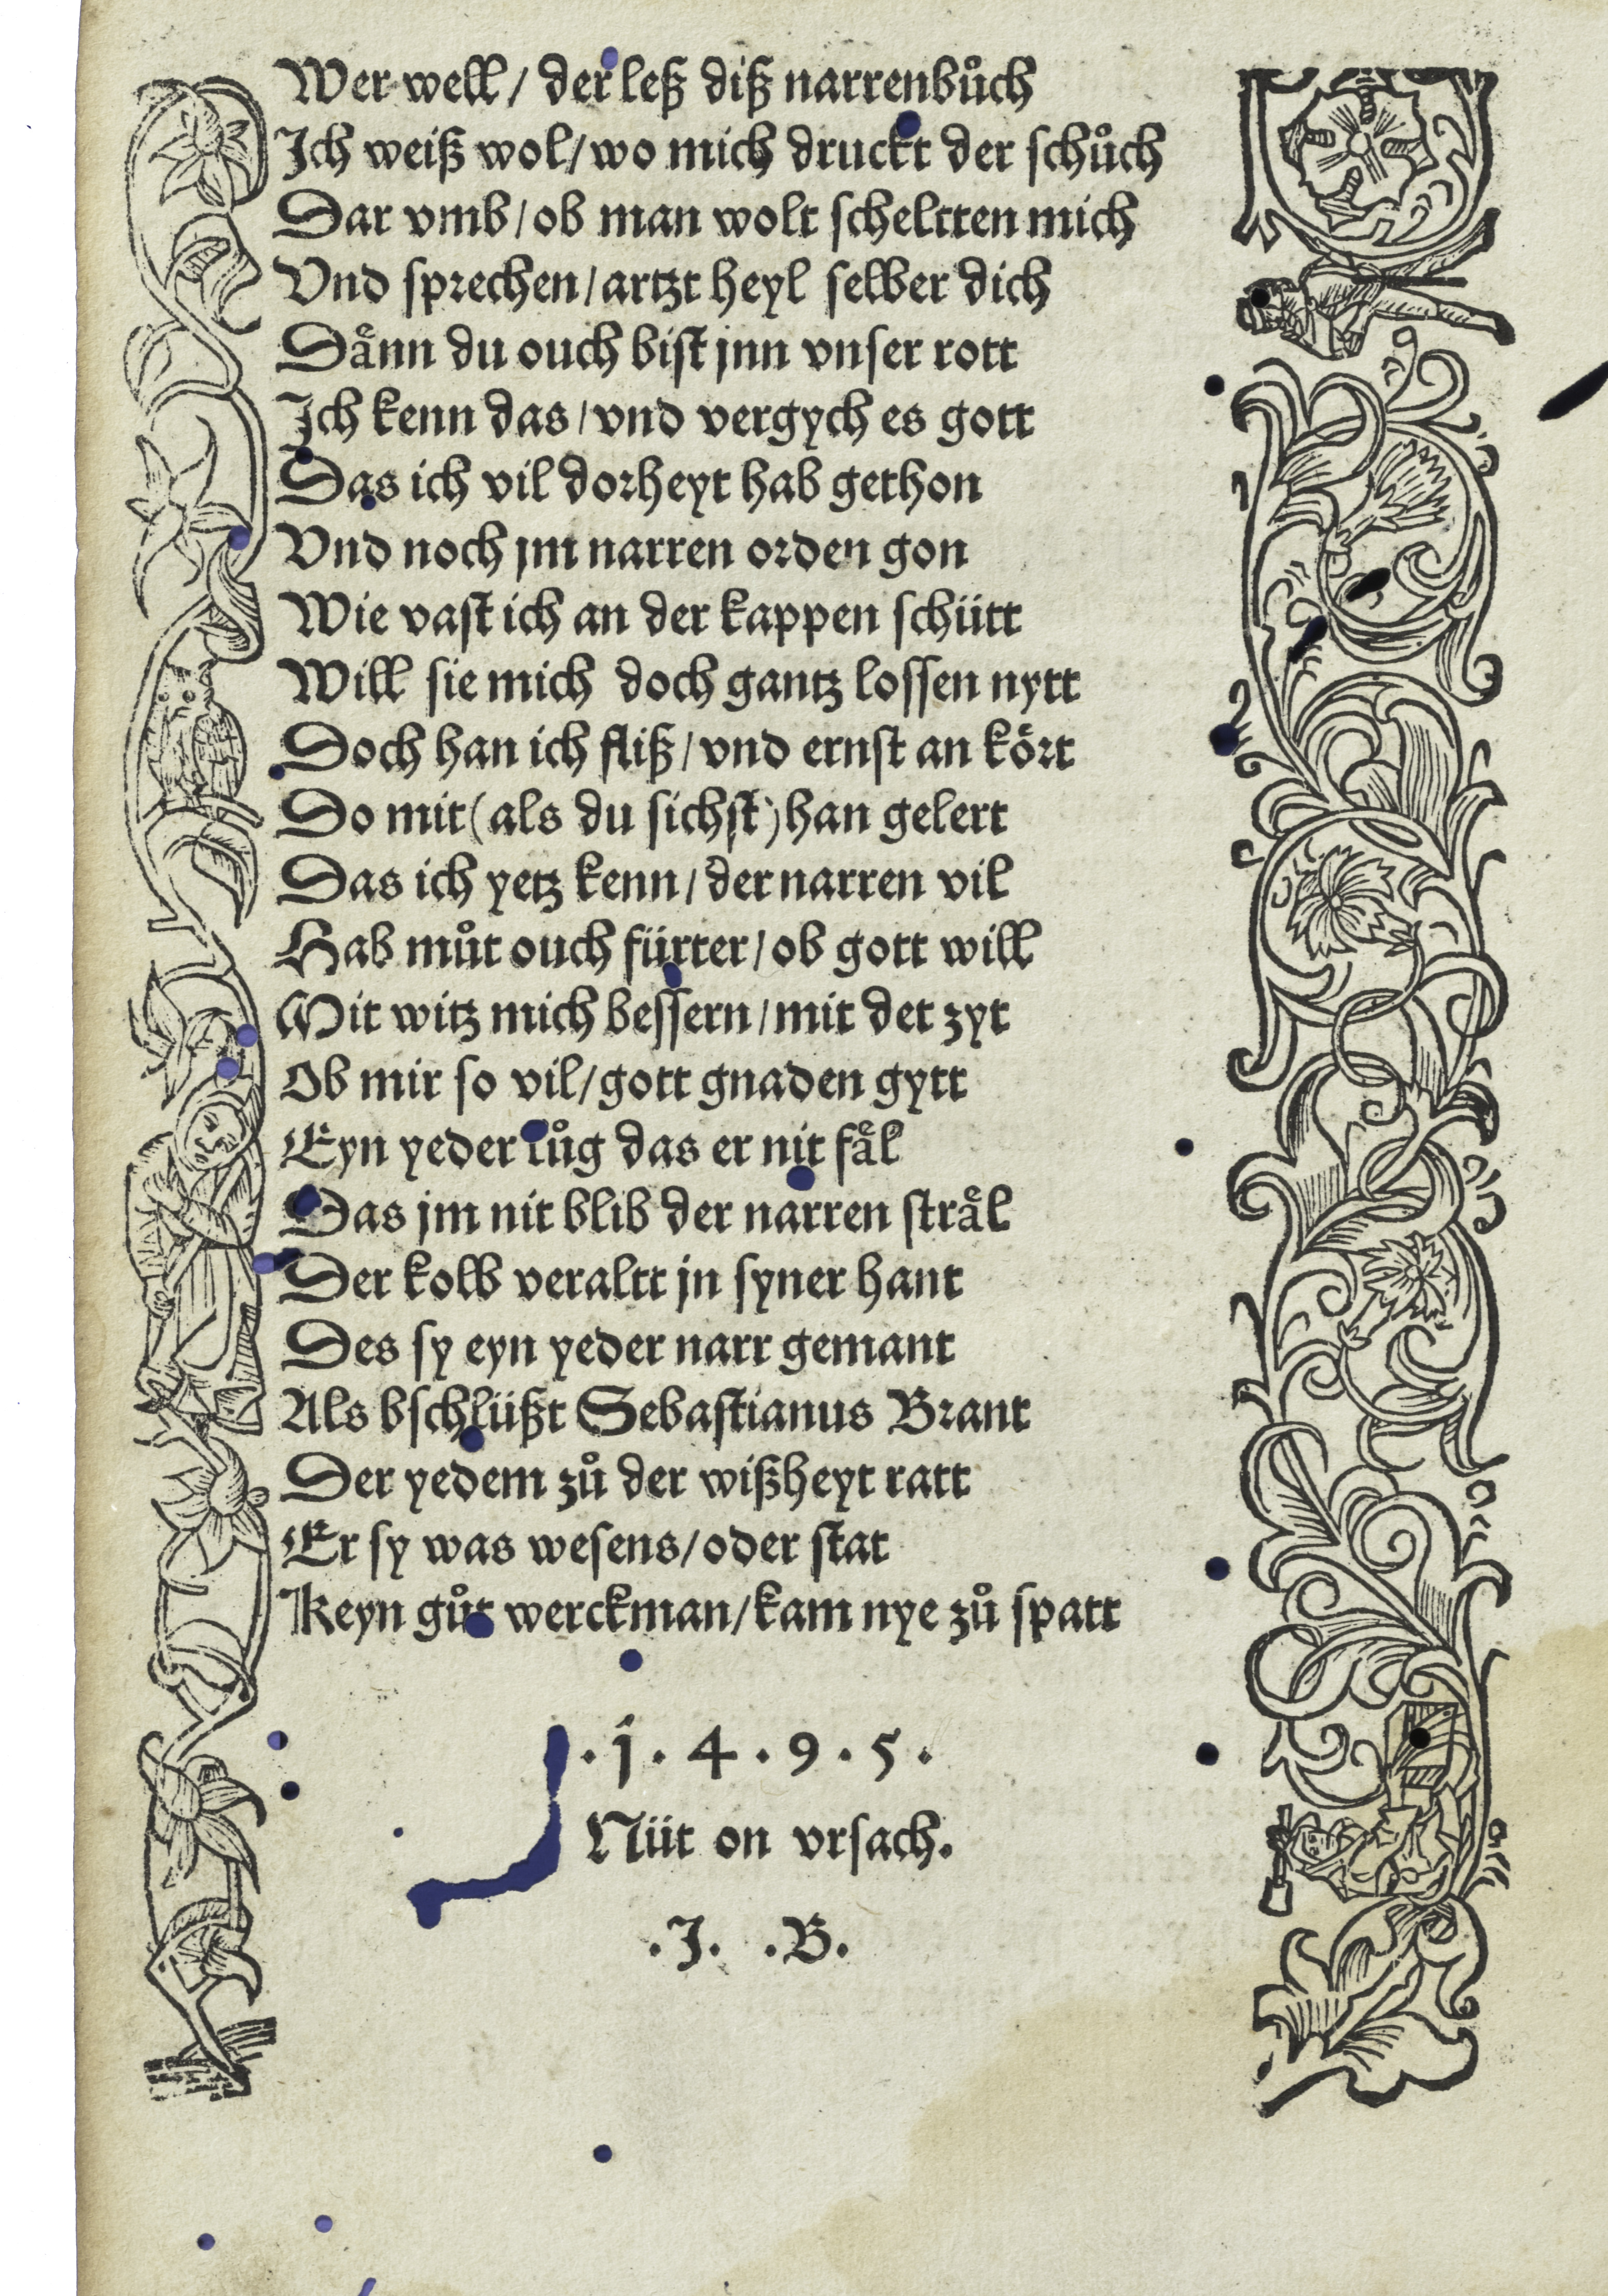 Wer well / der leß diß narrenbůch
Ich weiß wol / wo mich druckt der ſchůch
Dar vmb / ob man wolt ſcheltten mich
Vnd ſprechen / artzt heyl ſelber dich
Daͤnn du ouch biſt jnn vnſer rott
Ich kenn das / vnd vergych es gott
Das ich vil dorheyt hab gethon
Vnd noch jm narren orden gon
Wie vaſt ich an der kappen ſchütt
Will ſie mich doch gantz loſſen nytt
Doch han ich fliß / vnd ernſt an koͤrt
Do mit (als du ſichſt) han gelert
Das ich yetz kenn / der narren vil
Hab můt ouch fürter / ob gott will
Mit witz mich beſſern / mit det zyt
Ob mir ſo vil / gott gnaden gytt
Eyn yeder lůg das er nit faͤl
Das jm nit blib der narren ſtraͤl
Der kolb veraltt jn ſyner hant
Des ſy eyn yeder narr gemant
Als bſchlüßt Sebaſtianus Brant
Der yedem zů der wißheyt ratt
Er ſy was weſens / oder ſtat
Keyn gůt werckman / kam nye zů ſpatt
. j . 4 . 9 . 5 .
Nüt on vrſach.
.J. .B.